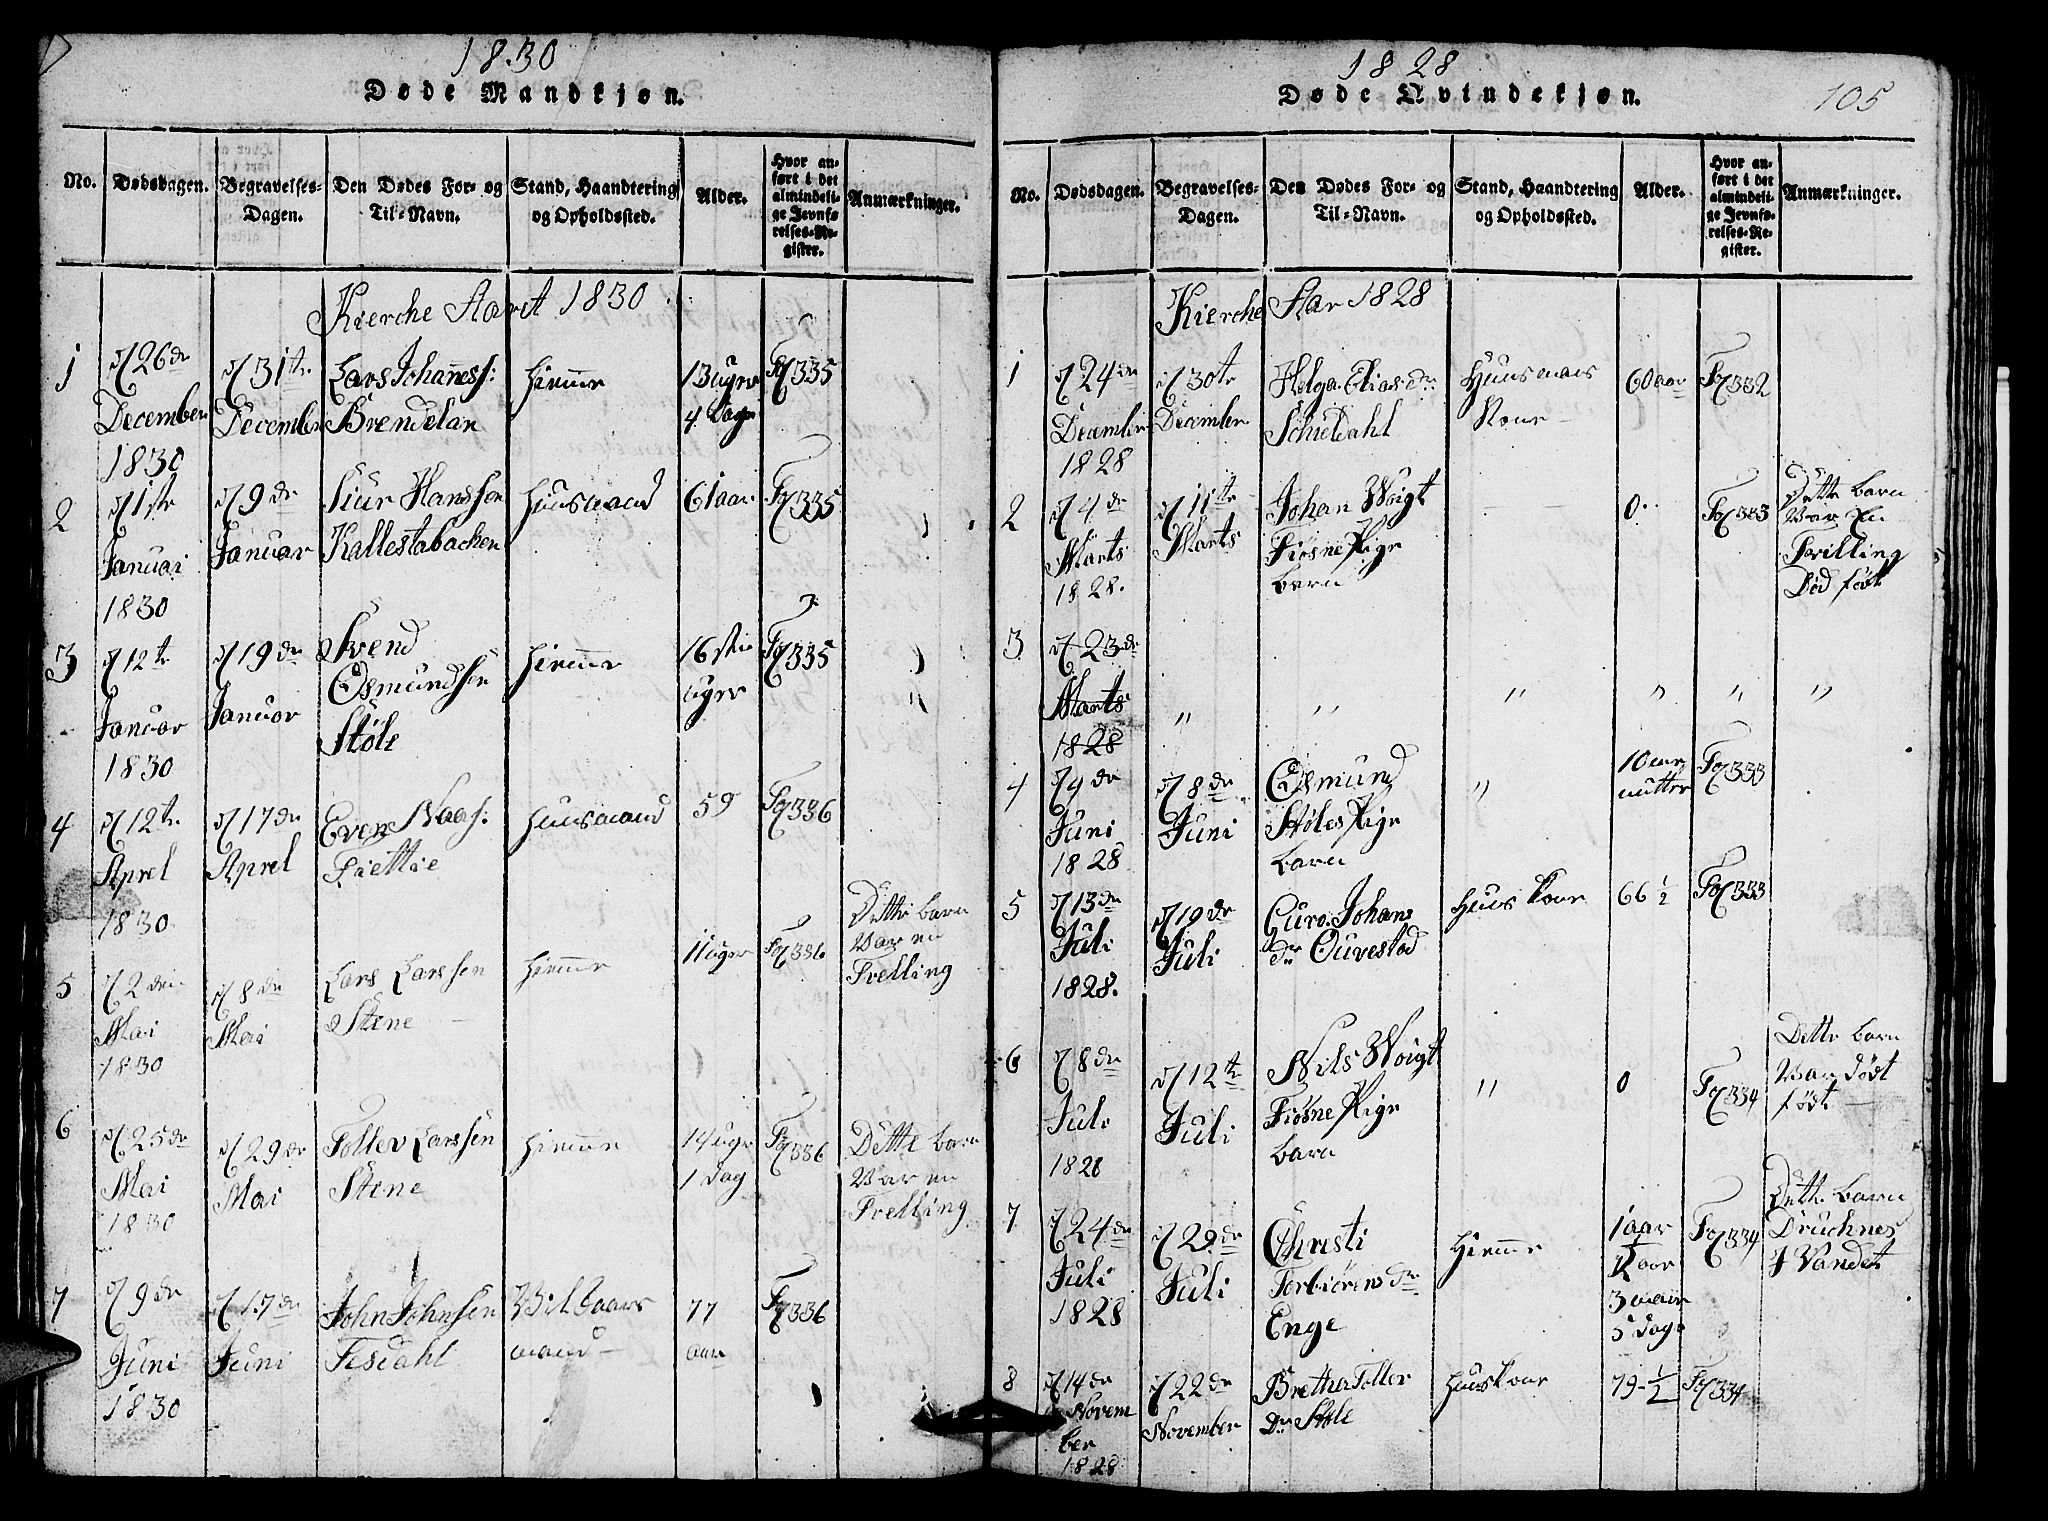 1830
Døde Mandkjøn.
No. Dødsdagen. Begravelses-Dagen. Den Dødes For- og Til-Navn. Stand, Haandtering og Opholdssted. Alder. Hvor anført i det almindelige Jevnførelses-Register. Anmærkninger.
Kierche Aaret 1830
1 d 26de December 1830 d 31te December Lars Johanness: Brendelan hiemme 13 uger 4 Dage Fol 335
2 d 1ste Januai 1830 d 9de Januar Siur Hanssen Kallestabacken huusmand 61 aar Fol 335
3 d 12te Januar 1830 d 19de Januar Svend Osmundsen Støle hiemme 16 uger Fol 335
4 d 12te Aprel 1830 d 17de Aprel Even Naas: Fiettie huusmand 59 Fol 336
5 d 2den Mai 1830 d 8de Mai Lars Larssen Stene hiemme 11 uger Fol 336 Dette barn Var en Tvelling
6 d 25de Mai 1830 d 29de Mai Tollev Larssen Stene hiemme 14 uger 1 Dag Fol 336 Dette barn Var en Tvelling
7 d 9de Juni 1830 d 17de Juni John Johnsen Tesdahl Vilkaars mand 77 aar Fol 336
1828
Døde Qvindekjøn.
105
No. Dødsdagen. Begravelses-Dagen. Den Dødes For- og Til-Navn. Stand, Haandtering og Opholdssted. Alder. Hvor anført i det almindelige Jevnførelses-Register. Anmærkninger.
Kierche Aar 1828
1 d 24de December 1828 d 30te December Helga Eliasdr Schieldahl Huusmans Kone 60 aar Fol 332
2 d 4de Marts 1828. d 11te Marts Johan Woigt Fiøsne Pige barn 0 Fol 333 Dette barn Var En Tvilling Død født
3 d 23de Marts 1828 " " " " " "
4 d 9de Juni 1828 d 8de Juni Osmund Støles Pige barn " 10 Fol 333
5 d 13de Juli 1828. d 19de Juli Guro Johans dr Ouvestad huuskone 66 1/2 Fol 333
6 d 8de Juli 1828 d 12te Juli Nils Woigt Fiøsne Pige barn " 0 Fol 334 Dette barn Var dødt født
7 d 24de Juli 1828 d 29de Juli Christi Torbiørens dr Enge hiemme 1 aar 3 5 Dage Fol 334 Dette barn Druchnes I Vandet
8 d 14de November 1828 d 22de November Bretha Toller Dr Støle huuskone 79-1/2 Fol 334